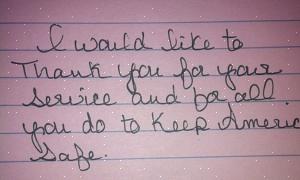 I would like to
Thank you for your
Service and for all
you do to Keep Americ
Safe.